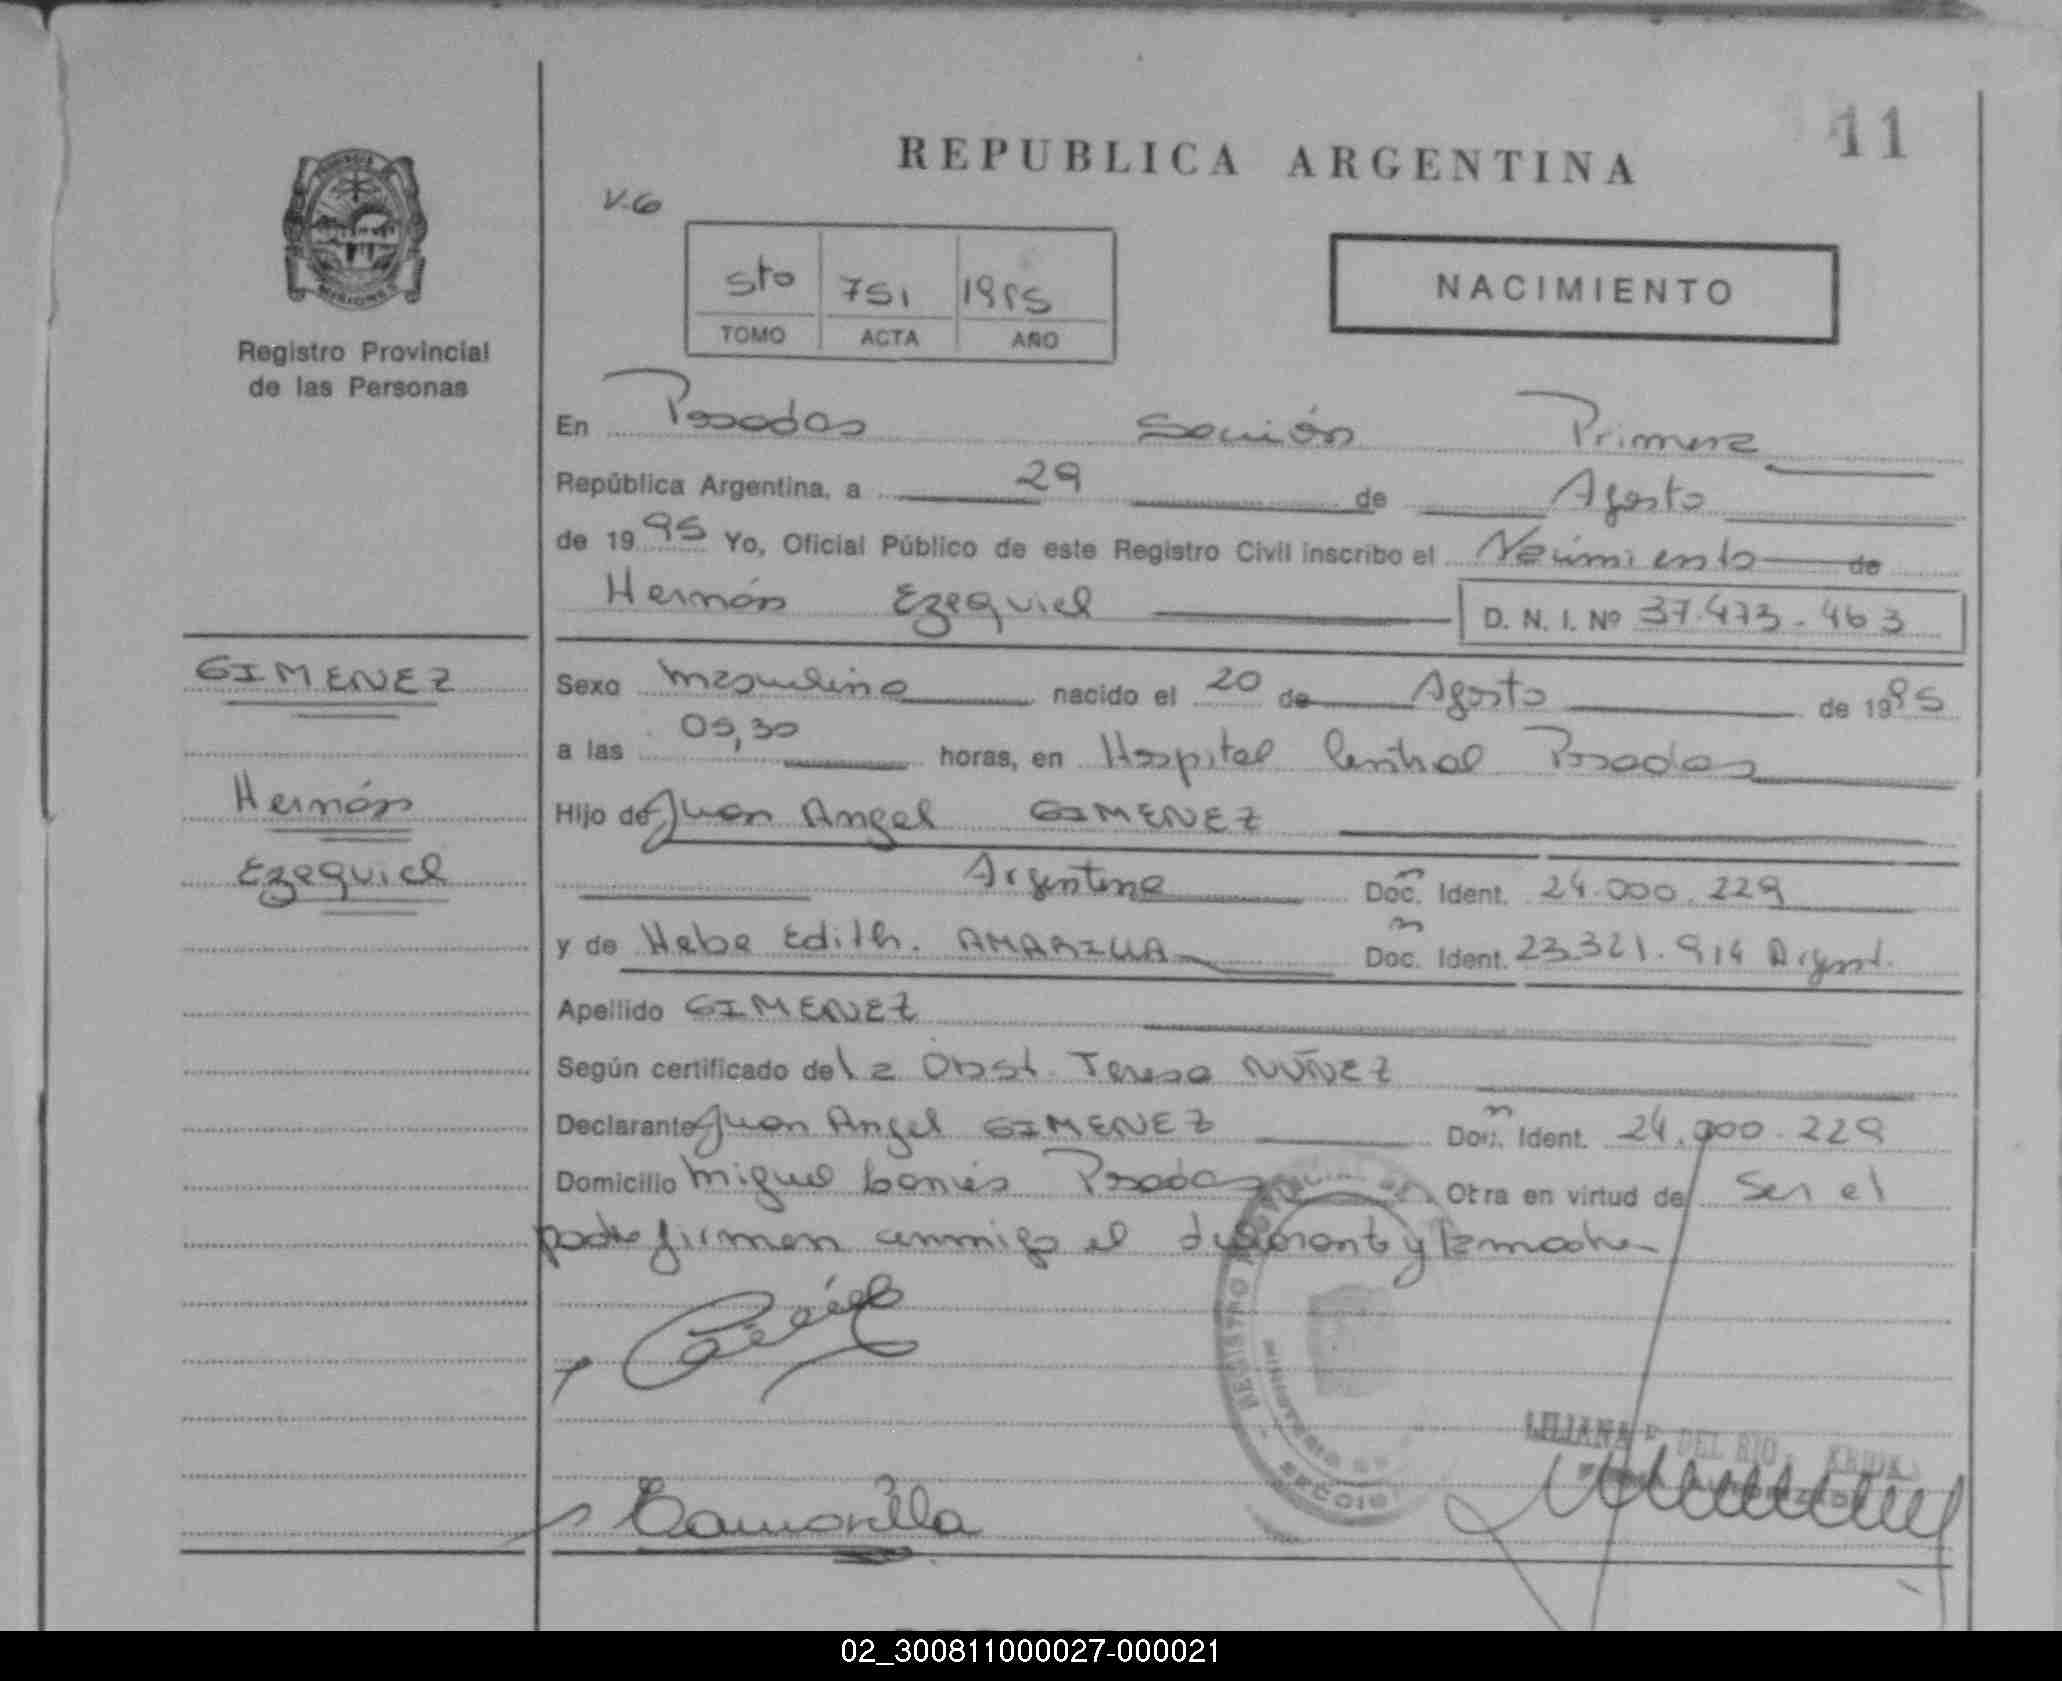 REPUBLICA ARGENTINA
11
V.6
5to 751 1995
TOMO ACTA AÑO
NACIMIENTO
MISIONES
Registro Provincial
de las Personas
En Posadas Sección Primera
República Argentina, a 29 de Agosto
de 1995 Yo, Oficial Público de este Registro Civil inscribo el Nacimiento de
Hernán Ezequiel D. N. I. Nº 37.473.463
GIMENEZ
Hernán
Ezequiel
Sexo Masculino nacido el 20 de Agosto de 1995
a las 05,30 horas, en Hospital Central Posadas
Hijo de Juan Angel GIMENEZ
Argentina Doc. Ident. 24.000.229
y de Hebe Edith. AMARILLA Doc. Ident. 23.321.914 Argent.
Apellido GIMENEZ
Según certificado de la Obst. Teresa NUÑEZ
Declarante Juan Angel GIMENEZ Doc. Ident. 24.000.229
Domicilio Miguel Posadas Otra en virtud de Ser el
padre firman conmigo el declarante y la madre
REGISTRO PROVINCIAL DE
MINISTERIO DE
LILIANA DEL RIO
02_300811000027-000021